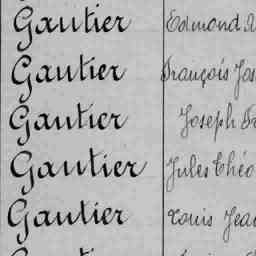 Gautier Edmond
Gautier François Jos
Gautier Joseph Fr
Gautier Jules Théo
Gautier Louis Jea